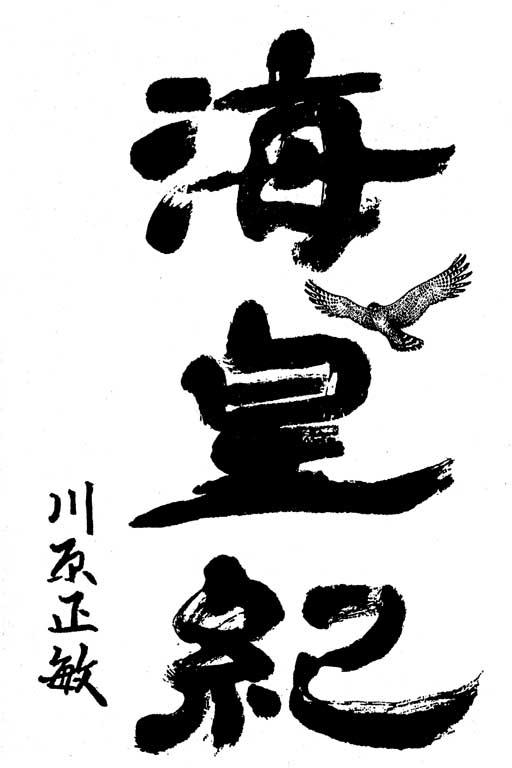 海皇紀
川原正敏